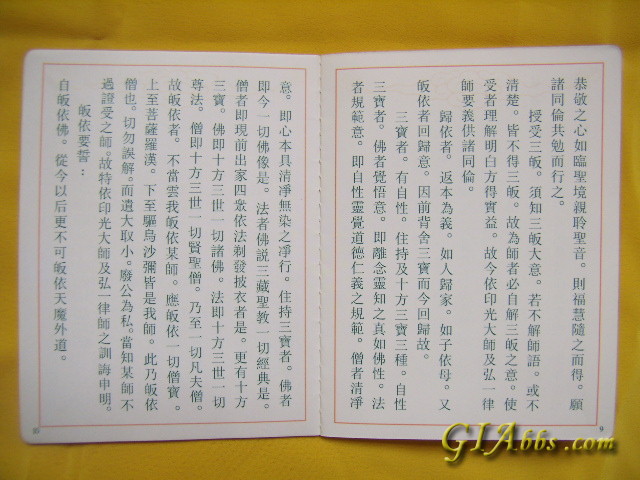 恭敬之心如臨聖境親聆聖音。則福慧隨之而得。願
諸同倫共勉而行之。
授受三皈。須知三皈大意。若不解師語。或不
清楚。皆不得三皈。故為師者必自解三皈之意。使
受者理解明白方得實益。故今依印光大師及弘一律
師要義供諸同倫。
歸依者。返本為義。如人歸家。如子依母。又
皈依者回歸意。因前背舍三寶而今回歸故。
三寶者。有自性。住持及十方三寶三種。自性
三寶者。佛者覺悟意。即離念靈知之真如佛性。法
者規範意。即自性靈覺道德仁義之規範。僧者清淨
9
意。即心本具清淨無染之淨行。住持三寶者。佛者
即今一切佛像是。法者佛説三藏聖教一切經典是。
僧者即現前出家四衆依法剃發披衣者是。更有十方
三寶。佛即十方三世一切諸佛。法即十方三世一切
尊法。僧即十方三世一切賢聖僧。乃至一切凡夫僧。
故皈依者。不當雲我皈依某師。應皈依一切僧寶。
上至菩薩羅漢。下至驅烏沙彌皆是我師。此乃皈依
僧也。切勿誤解。而遺大取小。廢公為私。當知某師不
過證受之師。故特依印光大師及弘一律師之訓誨申明。
皈依要誓：
自皈依佛。從今以后更不可皈依天魔外道。
10
GIAbbs.com